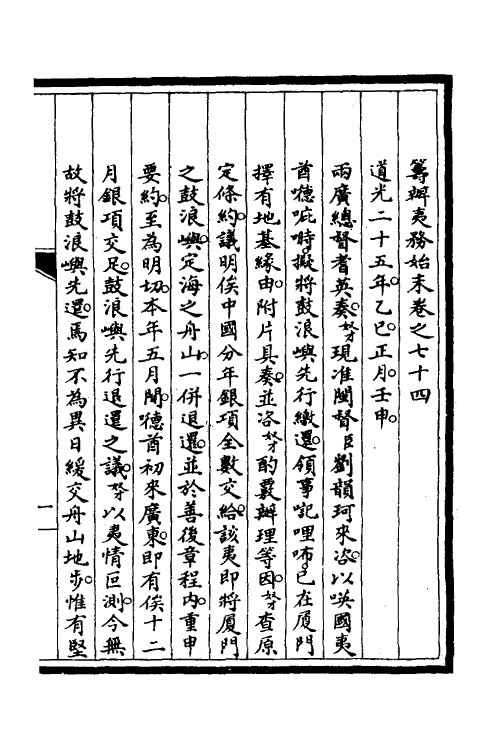 籌辦夷務始末卷之七十四
道光二十五年。乙巳。正月。壬申。
兩廣總督耆英奏。奴才現准閩督臣劉韻珂來咨。以㗸國夷
酋噫庇時。擬將鼓浪嶼先行繳還。領事記哩咘。已在厦門
擇有地基緣由。附片具奏。並咨奴才酌覈辦理等因。奴才查原
定條約。議明俟中國分年銀項全數交給。該夷即將厦門
之鼓浪嶼。定海之舟山。一併退還。並於善後章程內。重申
要約。至為明切。本年五月間。噫酋初來廣東。即有俟十二
月銀項交足。鼓浪嶼先行退還之議。奴才以夷情叵測。今無
故將鼓浪嶼先還。焉知不為異日緩交舟山地步。惟有堅
一